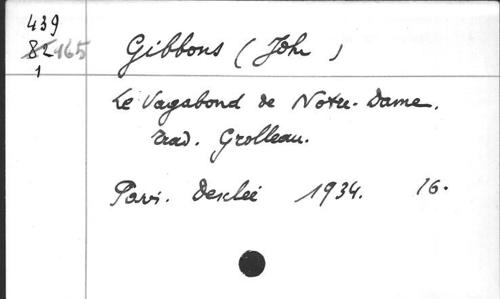 439
82165
1
Gibbons (John)
Le Vagabond de Notre-Dame.
trad. Grolleau.
Paris. Desclée 1934. 16.